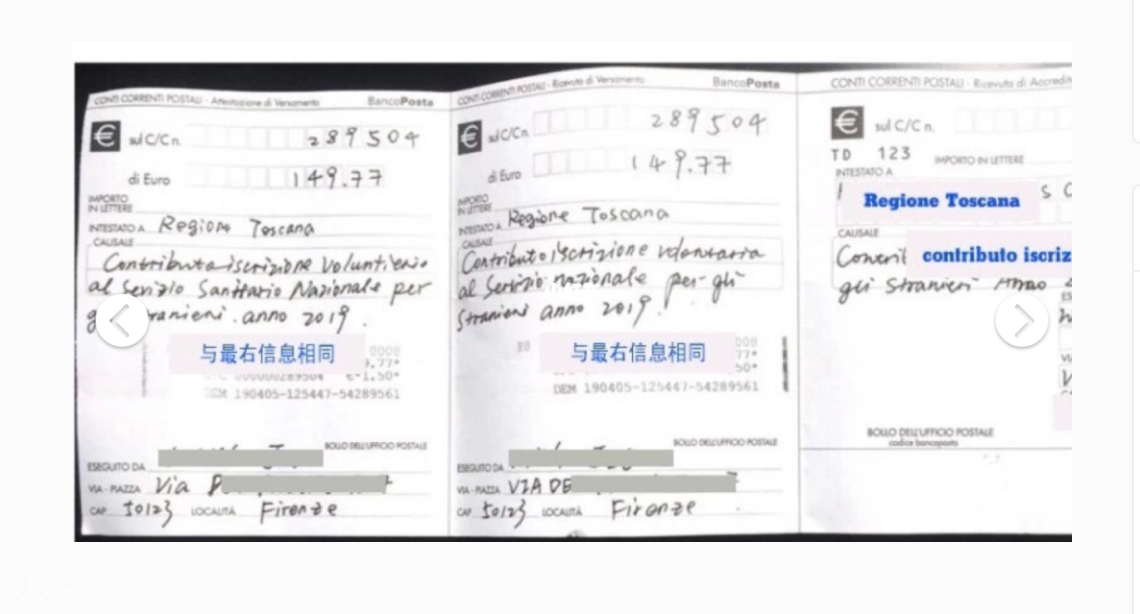 CONTI CORRENTI POSTALI - Attestazione di Versamento BancoPosta
€ sul C/C n. 289504
di Euro 149.77
IMPORTO
IN LETTERE
INTESTATO A Regione Toscana
CAUSALE
Contributo iscrizione
al Servizio Sanitario Nazionale per
stranieri. anno 2019.
与最右信息相同
0008
9,77*
000000289504 €*1,50*
190405-125447-54289561
BOLLO DELL'UFFICIO POSTALE
ESEGUITO DA
VIA - PIAZZA Via
CAP 50123 LOCALITÀ Firenze
CONTI CORRENTI POSTALI - Ricevuta di Versamento BancoPosta
€ sul C/C n. 289504
di Euro 149.77
IMPORTO
IN LETTERE
INTESTATO A Regione Toscana
CAUSALE
Contributo iscrizione volontaria
al Servizio nazionale per gli
Stranieri anno 2019.
与最右信息相同
0008
77*
50*
DEM 190405-125447-54289561
BOLLO DELL'UFFICIO POSTALE
ESEGUITO DA
VIA - PIAZZA VIA DE
CAP 50123 LOCALITÀ Firenze
CONTI CORRENTI POSTALI - Ricevuta di Accredit
€ sul C/C n.
TD 123 IMPORTO IN LETTERE
INTESTATO A
Regione Toscana
S
CAUSALE
contributo iscriz
gli Stranieri Anno
BOLLO DELL'UFFICIO POSTALE
codice bancoposta